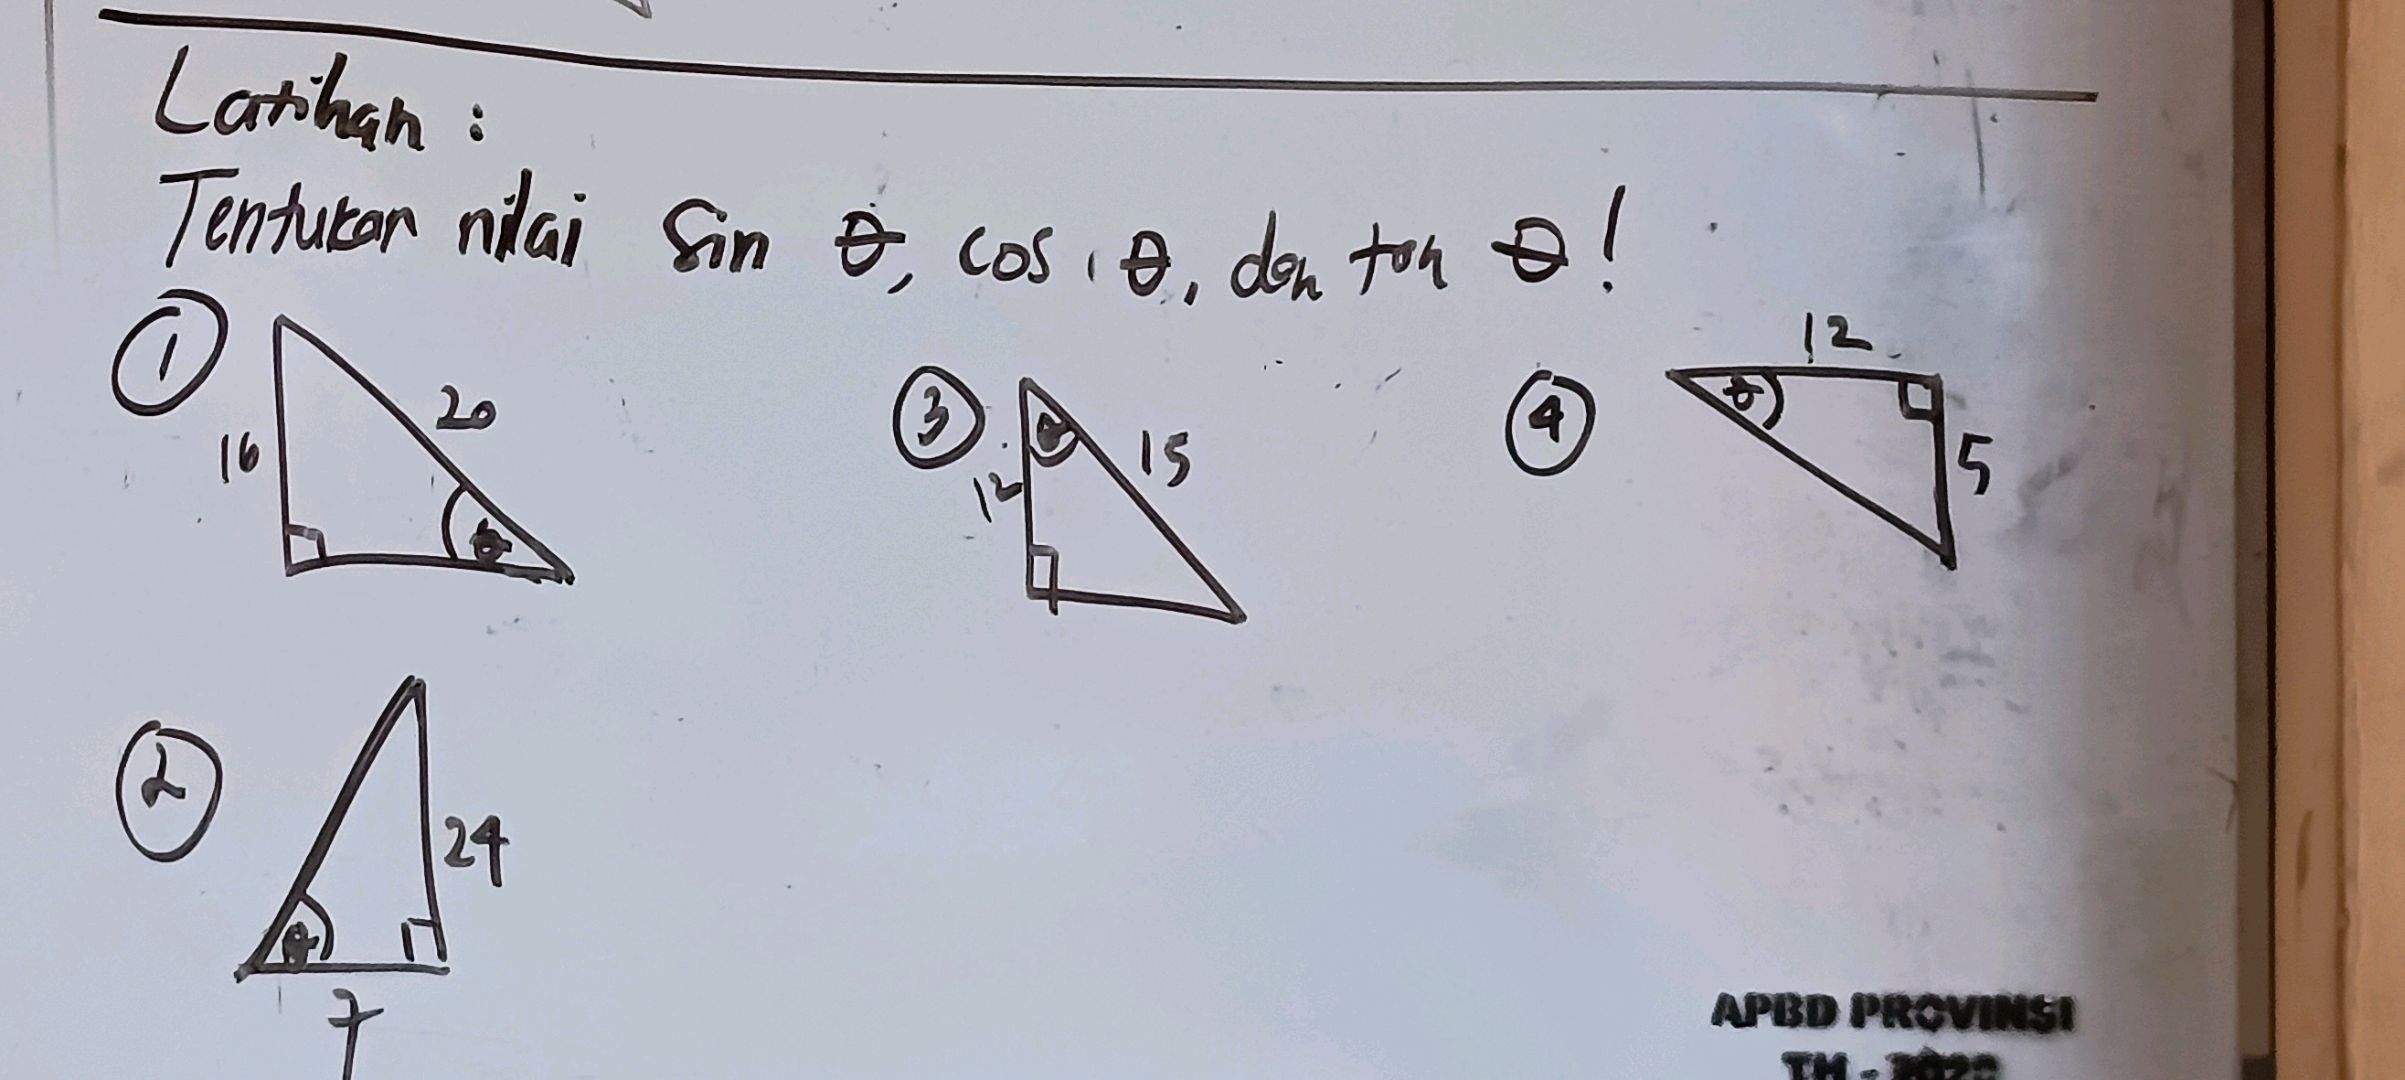 Latihan :
Tentukan nilai Sin θ, cos θ, dan tan θ!
① 16 20 θ
③ 12 15 θ
④ 12 5 θ
② 24 7 θ
APBD PROVINSI